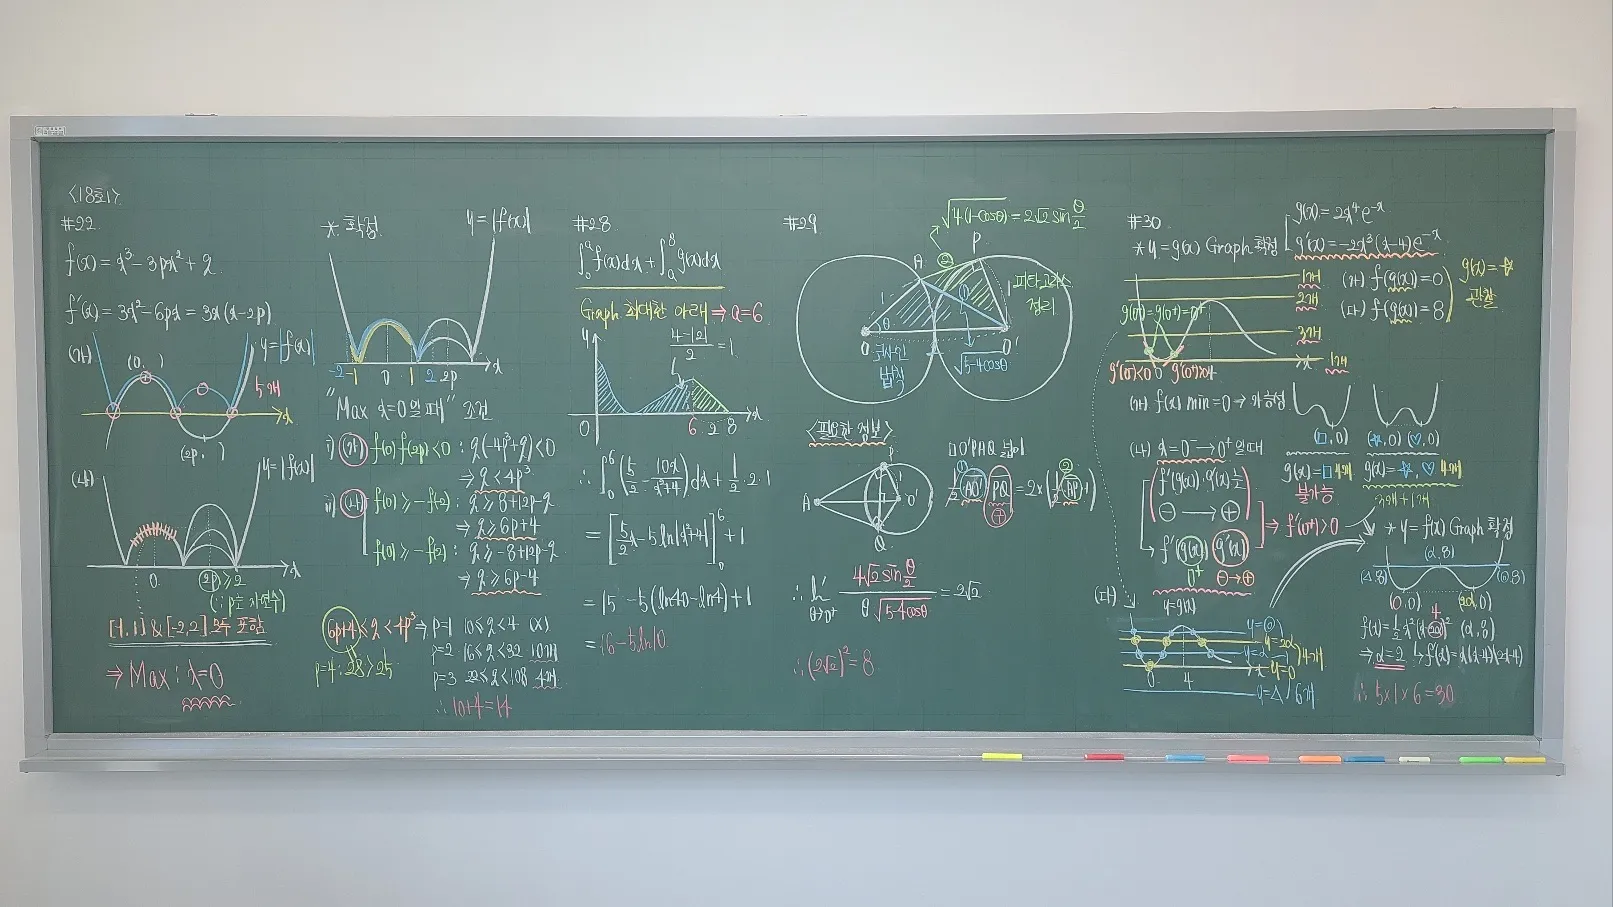 <18회>
#22
f(x) = x³ - 3px² + q
f'(x) = 3x² - 6px = 3x(x-2p)
(가)
(0, )
y = |f(x)|
5개
x
(2p, )
(나)
y = |f(x)|
0
2p ≥ 2
x
(∵ p는 자연수)
[-1,1] & [-2,2] 모두 포함
⇒ Max : x=0
* 확정
y = |f(x)|
-2 -1 0 1 2 2p x
"Max x=0일 때" 조건
i) (가) f(0)f(2p)<0 : q(-4p³+q)<0
⇒ q<4p³
ii) (나) f(0) ≥ -f(-2) : q ≥ 8+12p-q
⇒ q ≥ 6p+4
f(0) ≥ -f(2) : q ≥ -8+12p-q
⇒ q ≥ 6p-4
6p+4 ≤ q < 4p³ ⇒ p=1 10≤q<4 (X)
p=2 16≤q<32 10개
p=4 : 28>25
p=3 22≤q<108 4개
∴ 10+4=14
#28
∫₀ᵃ f(x)dx + ∫ₐ⁸ g(x)dx
Graph 최대한 아래 ⇒ a=6
|4-|2||/2 = 1
y
0 6 2 8 x
∴ ∫₀⁶ (5/2 - 10x/(x²+4)) dx + 1/2·2·1
= [5/2 x - 5ln|x²+4|]₀⁶ + 1
= 15 - 5(ln40 - ln4) + 1
= 16 - 5ln10
#29
√4(1-cosθ) = 2√2 sin θ/2
A
P
②
1
θ
O
O'
코사인
법칙
√5-4cosθ
피타고라스
정리
<필요한 정보>
P
A
O'
Q
1
□O'PAQ 넓이
1/2 AO' PQ = 2×(1/2 AP·1)
∴ lim θ→0+ 4√2 sin θ/2 / θ√5-4cosθ = 2√2
∴ (2√2)² = 8
#30
* y = g(x) Graph 확정
g(x) = 2x⁴e⁻ˣ
g'(x) = -2x³(x-4)e⁻ˣ
1개
2개
3개
1개
x
(가) f(g(x))=0
(다) f(g(x))=8
g(x)=☆
관찰
g(0-)=g(0+)=0+
g'(0-)<0 0 g'(0+)>0
(가) f(x) min=0 → 가능성
(□, 0)
g(x)=□ 4개
불가능
(☆, 0) (♡, 0)
g(x)=☆, ♡ 4개
3개+1개
(나) x=0⁻→0⁺일 때
f'(g(x))·g'(x)는
⊖ → ⊕
f'(g(x)) g'(x)
0⁺ ⊖→⊕
⇒ f'(0+)>0
* y=f(x) Graph 확정
(α, 8)
(△, 8) (◎, 8)
(0, 0) (2α, 0)
4
f(x)=1/2 x²(x-2α)² (α, 8)
⇒ α=2 ↳ f'(x)=x(x-4)(2x-4)
∴ 5×1×6=30
(다)
y=g(x)
y=◎
y=2α
y=α
y=0
y=△
4개
6개
0 4 x